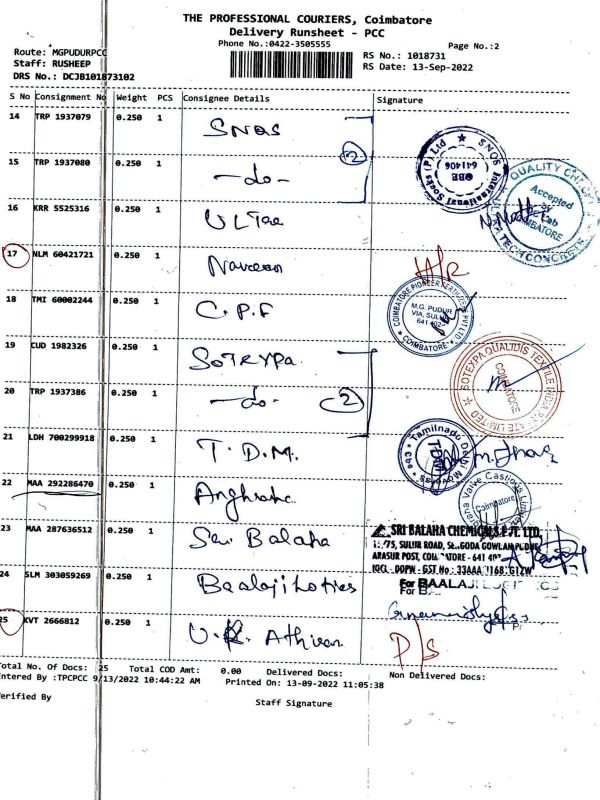 THE PROFESSIONAL COURIERS, Coimbatore
Delivery Runsheet - PCC
Phone No.:0422-3505555
Page No.:2
Route: MGPUDURPCC
Staff: RUSHEEP
DRS No.: DCJB101873102
RS No.: 1018731
RS Date: 13-Sep-2022
S No Consignment No Weight PCS Consignee Details Signature
14 TRP 1937079 0.250 1 SNQS
15 TRP 1937080 0.250 1 -do- 2
16 KRR 5525316 0.250 1 ULTRA
17 NLM 60421721 0.250 1 Naveen
18 TMI 60002244 0.250 1 C.P.F
19 CUD 1982326 0.250 1 SOTEXPA
20 TRP 1937386 0.250 1 -do- 2
21 LDH 700299918 0.250 1 T.D.M.
22 MAA 292286470 0.250 1
23 MAA 287636512 0.250 1 Sri Balaha
24 SLM 303059269 0.250 1 Baalaji
25 KVT 2666812 0.250 1 Athiran
SNQS International Socks (P) Ltd
OBE
641406
QUALITY
Accepted
COIMBATORE
H/R
COIMBATORE PIONEER FERTILIZERS PVT LTD
M.G. PUDUR
VIA, SULUR
COIMBATORE
SOTEXPA QUALIDIS TEXTILE INDIA PRIVATE LIMITED
COIMBATORE
Tamilnadu
TDM
Valve Castings
Coimbatore
SRI BALAHA CHEMICALS PVT. LTD,
SULUR ROAD,
ARASUR POST,
For BAALAJI
P/S
Total No. Of Docs: 25 Total COD Amt: 0.00 Delivered Docs: Non Delivered Docs:
Entered By :TPCPCC 9/13/2022 10:44:22 AM Printed On: 13-09-2022 11:05:38
Verified By
Staff Signature